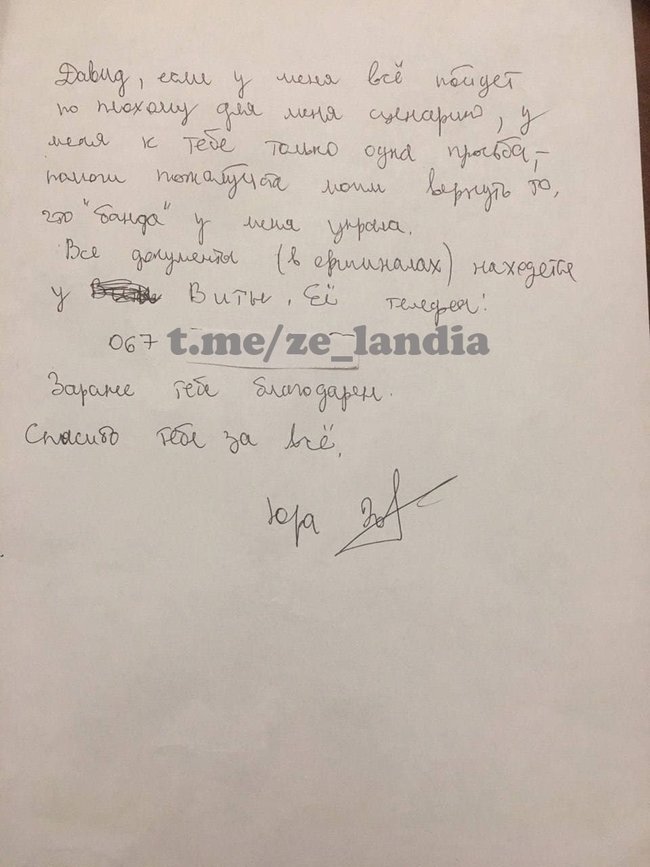 Давид, если у меня всё пойдет
по плохому для меня сценарию, у
меня к тебе только одна просьба, –
помоги пожалуйста моим вернуть то,
что "банда" у меня украла.
Все документы (в оригиналах) находятся
у Виты. Её телефон:
067 t.me/ze_landia
Заранее тебе благодарен.
Спасибо тебе за всё.
Юра